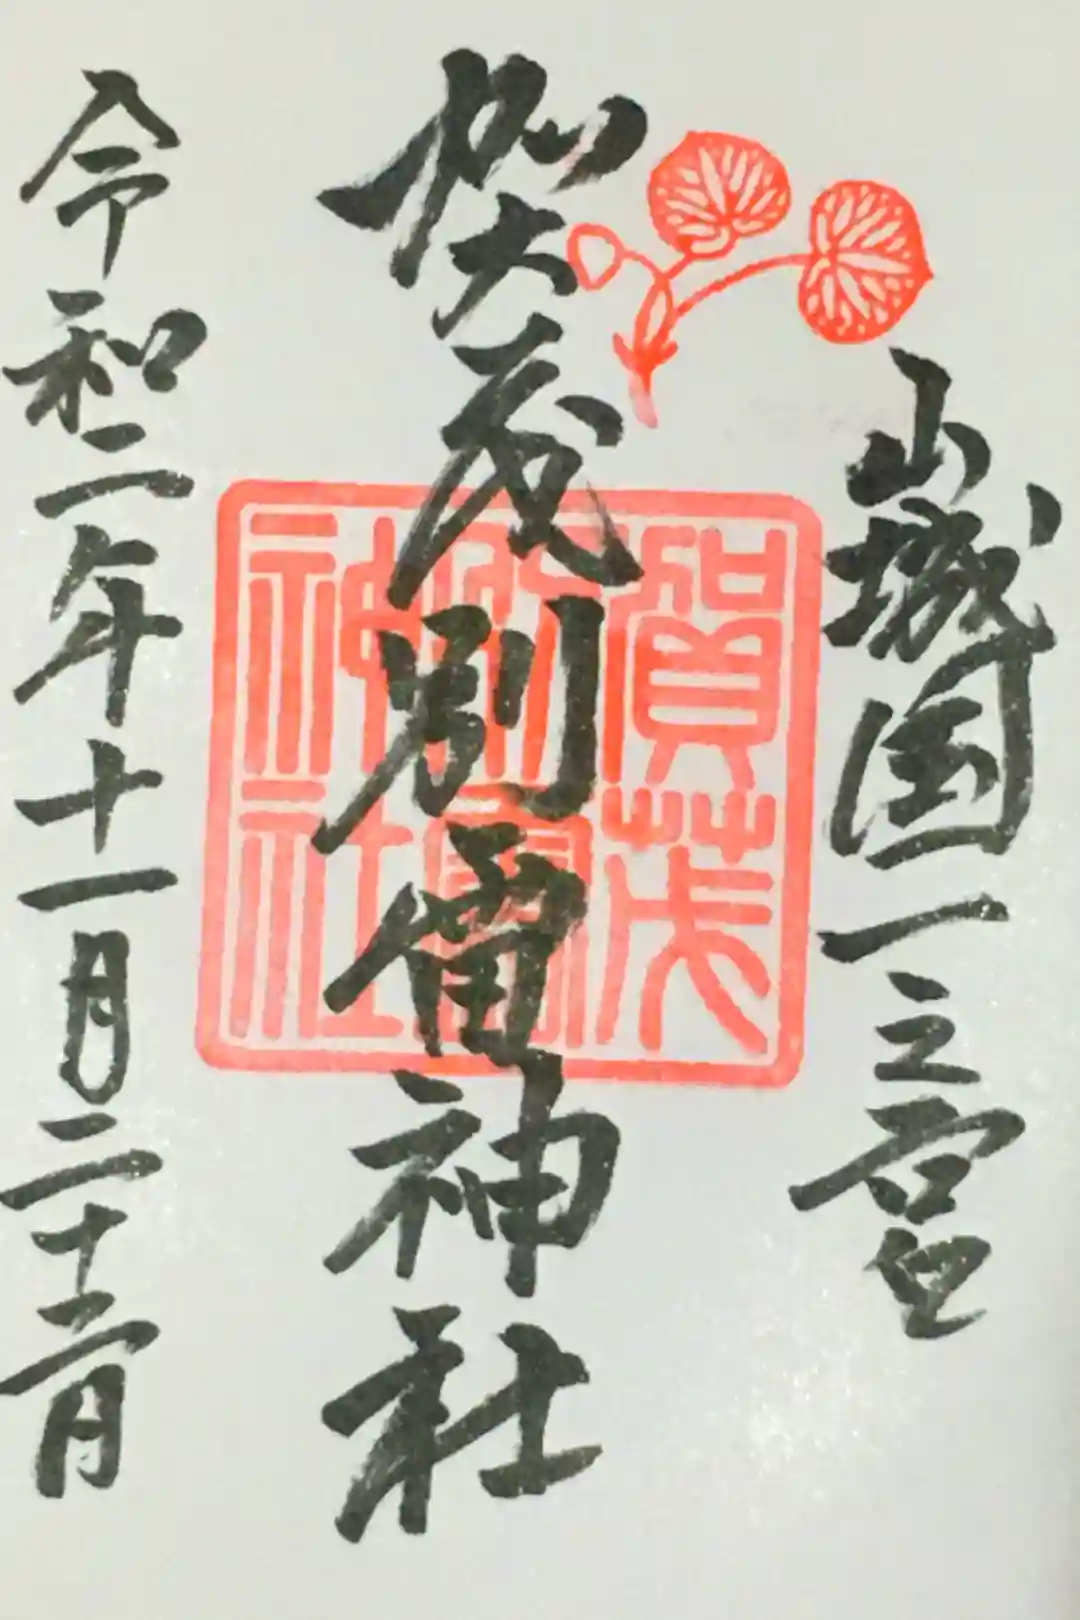 山城国一之宮
賀茂別雷神社
賀茂別雷神社
令和二年十一月二十二日